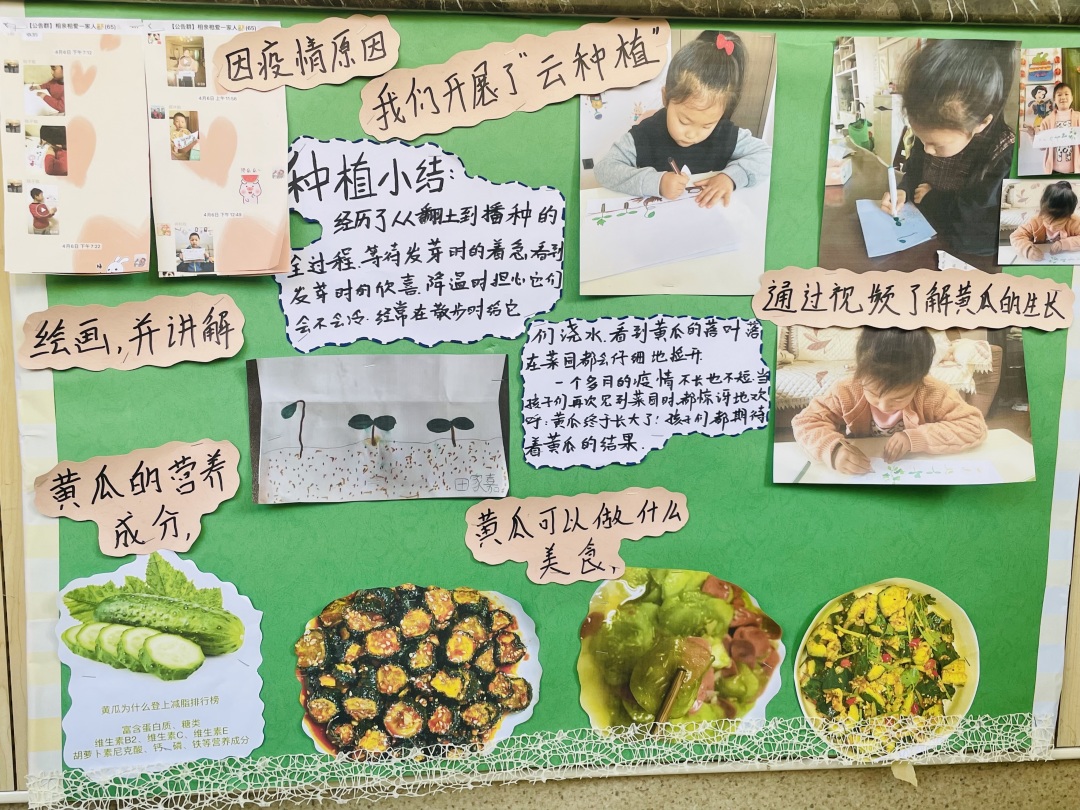 【公告群】相亲相爱一家人
(65)
【公告群】相亲相爱一家人
(65)
4月6日 下午7:23
因疫情原因
我们开展了“云种植”
种植小结:
经历了从翻土到播种的
全过程.等待发芽时的着急.看到
发芽时的欣喜.降温时担心它们
会不会冷.经常在散步时给它
们浇水.看到黄瓜的落叶落
在菜园都会仔细地捡开.
一个多月的疫情不长也不短.当
孩子们再次见到菜园时.都惊讶地欢
呼:黄瓜终于长大了!孩子们都期待
着黄瓜的结果.
通过视频了解黄瓜的生长
绘画,并讲解
田家嘉
黄瓜的营养
成分,
黄瓜可以做什么
美食,
黄瓜为什么登上减脂排行榜
富含蛋白质、糖类
维生素B2、维生素C、维生素E
胡萝卜素尼克酸、钙、磷、铁等营养成分